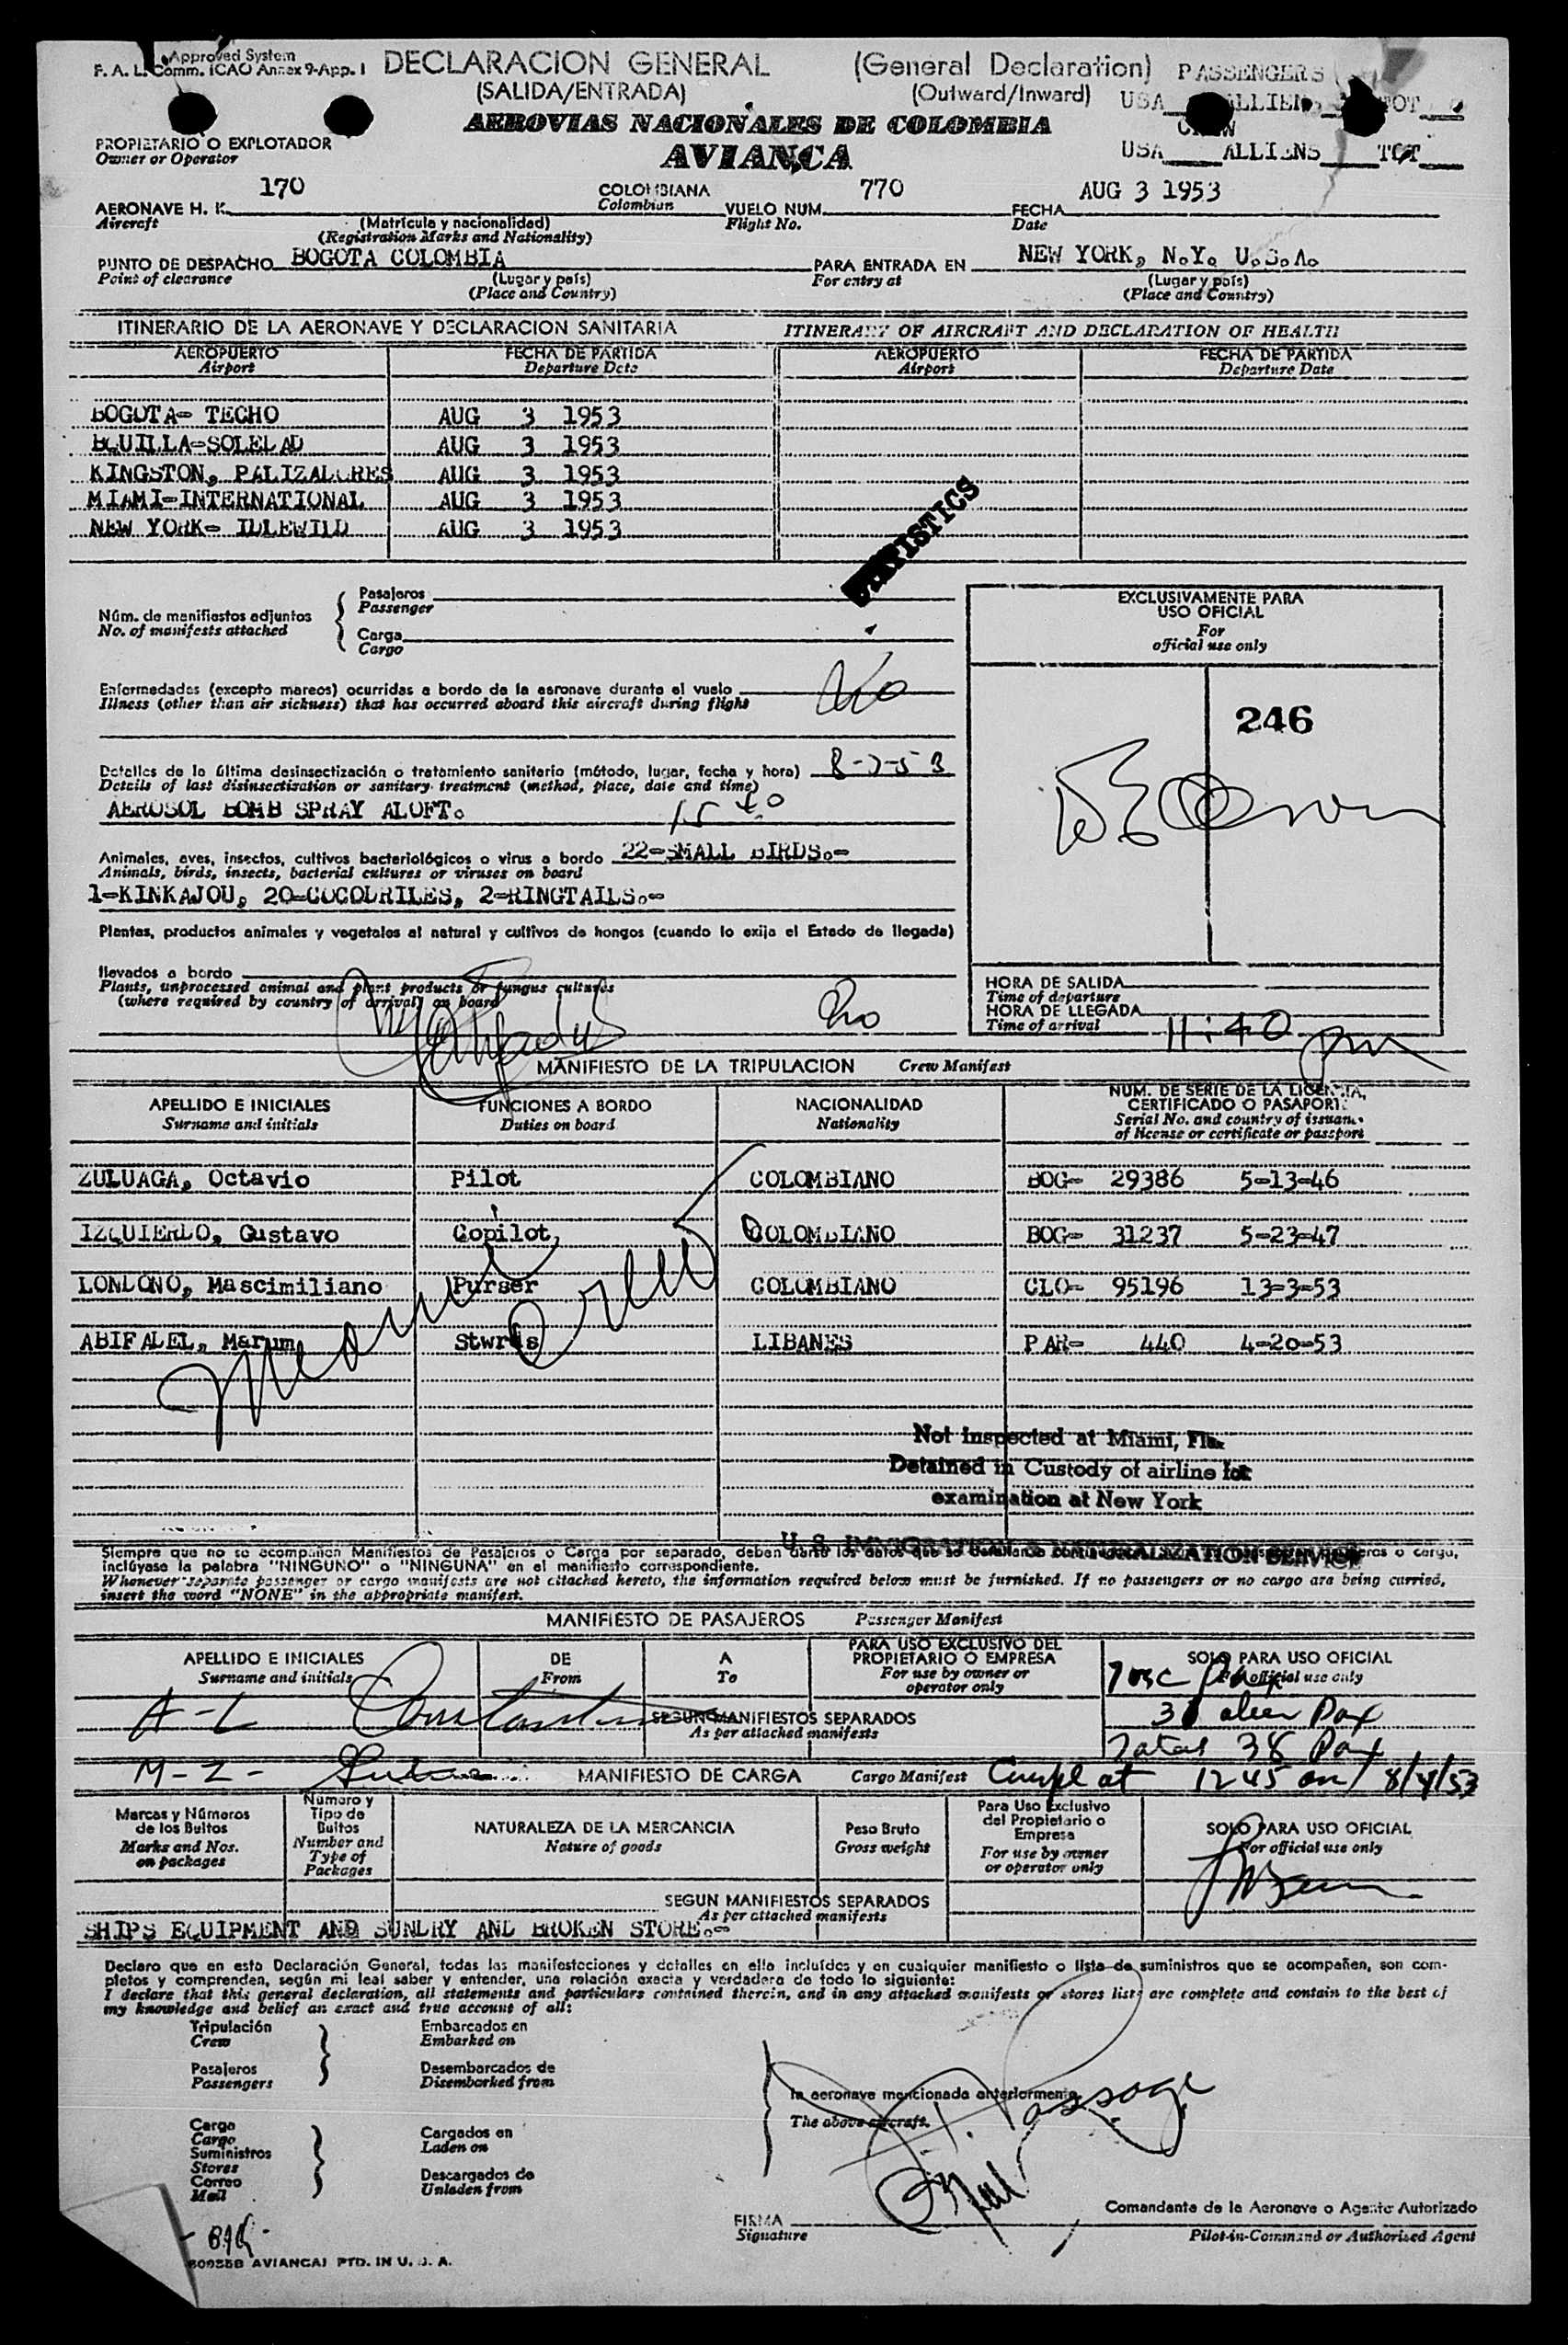 Approved System
F. A. L. Comm. ICAO Annex 9-App. I
DECLARACION GENERAL (General Declaration)
(SALIDA/ENTRADA) (Outward/Inward)
PASSENGERS
USA ALLIENS TOT
CREW
USA ALLIENS TOT
AEROVIAS NACIONALES DE COLOMBIA
AVIANCA
PROPIETARIO O EXPLOTADOR
Owner or Operator
AERONAVE H. K. 170 COLOMBIANA VUELO NUM. 770 FECHA AUG 3 1953
Aircraft Colombian Flight No. Date
(Matrícula y nacionalidad)
(Registration Marks and Nationality)
PUNTO DE DESPACHO BOGOTA COLOMBIA PARA ENTRADA EN NEW YORK, N.Y. U.S.A.
Point of clearance (Lugar y país) For entry at (Lugar y país)
(Place and Country) (Place and Country)
ITINERARIO DE LA AERONAVE Y DECLARACION SANITARIA ITINERARY OF AIRCRAFT AND DECLARATION OF HEALTH
AEROPUERTO FECHA DE PARTIDA AEROPUERTO FECHA DE PARTIDA
Airport Departure Date Airport Departure Date
BOGOTA- TECHO AUG 3 1953
BQUILLA-SOLELAD AUG 3 1953
KINGSTON, PALIZADORES AUG 3 1953
MIAMI-INTERNATIONAL AUG 3 1953
NEW YORK- IDLEWILD AUG 3 1953
STATISTICS
Núm. de manifiestos adjuntos
No. of manifests attached
Pasajeros
Passenger
Carga
Cargo
EXCLUSIVAMENTE PARA
USO OFICIAL
For
official use only
246
Enfermedades (excepto mareos) ocurridas a bordo de la aeronave durante el vuelo No
Illness (other than air sickness) that has occurred aboard this aircraft during flight
Detalles de la última desinsectización o tratamiento sanitario (método, lugar, fecha y hora) 8-3-53
Details of last disinsectization or sanitary treatment (method, place, date and time)
AEROSOL BOMB SPRAY ALOFT. 1540
Animales, aves, insectos, cultivos bacteriológicos o virus a bordo 22-SMALL BIRDS.-
Animals, birds, insects, bacterial cultures or viruses on board
1-KINKAJOU, 20-COCODRILES, 2-RINGTAILS.-
Plantas, productos animales y vegetales al natural y cultivos de hongos (cuando lo exija el Estado de llegada)
llevados a bordo
Plants, unprocessed animal and plant products or fungus cultures
(where required by country of arrival) on board No
HORA DE SALIDA
Time of departure
HORA DE LLEGADA
Time of arrival 11:40 pm
MANIFIESTO DE LA TRIPULACION Crew Manifest
APELLIDO E INICIALES FUNCIONES A BORDO NACIONALIDAD NUM. DE SERIE DE LA LICENCIA,
CERTIFICADO O PASAPORTE
Surname and initials Duties on board Nationality Serial No. and country of issuance
of license or certificate or passport
ZULUAGA, Octavio Pilot COLOMBIANO BOG- 29386 5-13-46
IZQUIERDO, Gustavo Copilot COLOMBIANO BOG- 31237 5-23-47
LONDONO, Mascimiliano Purser COLOMBIANO CLO- 95196 13-3-53
ABIFALEL, Marum Stwrds LIBANES PAR- 440 4-20-53
Not inspected at Miami, Fla
Detained in Custody of airline for
examination at New York
U. S. IMMIGRATION & NATURALIZATION SERVICE
Siempre que no se acompañen Manifiestos de Pasajeros o Carga por separado, deben darse los datos que se detallan a carga,
inclúyase la palabra "NINGUNO" o "NINGUNA" en el manifiesto correspondiente.
Whenever separate passenger or cargo manifests are not attached hereto, the information required below must be furnished. If no passengers or no cargo are being carried,
insert the word "NONE" in the appropriate manifest.
MANIFIESTO DE PASAJEROS Passenger Manifest
APELLIDO E INICIALES DE A PARA USO EXCLUSIVO DEL
PROPIETARIO O EMPRESA SOLO PARA USO OFICIAL
Surname and initials From To For use by owner or
operator only For official use only
A-L 7 usc Pax
SEGUN MANIFIESTOS SEPARADOS 31 alien Pax
As per attached manifests Total 38 Pax
M-Z- MANIFIESTO DE CARGA Cargo Manifest Compl at 1245 am 8/4/53
Marcas y Números
de los Bultos
Marks and Nos.
on packages
Número y
Tipo de
Bultos
Number and
Type of
Packages
NATURALEZA DE LA MERCANCIA
Nature of goods
Peso Bruto
Gross weight
Para Uso Exclusivo
del Propietario o
Empresa
For use by owner
or operator only
SOLO PARA USO OFICIAL
For official use only
SEGUN MANIFIESTOS SEPARADOS
As per attached manifests
SHIPS EQUIPMENT AND SUNDRY AND BROKEN STORE.-
Declaro que en esta Declaración General, todas las manifestaciones y detalles en ella incluídos y en cualquier manifiesto o lista de suministros que se acompañen, son com-
pletos y comprenden, según mi leal saber y entender, una relación exacta y verdadera de todo lo siguiente:
I declare that this general declaration, all statements and particulars contained therein, and in any attached manifests or stores lists are complete and contain to the best of
my knowledge and belief an exact and true account of all:
Tripulación Embarcados en
Crew Embarked on
Pasajeros Desembarcados de
Passengers Disembarked from
la aeronave mencionada anteriormente
The above aircraft.
Carga Cargados en
Cargo Laden on
Suministros
Stores
Correo Descargados de
Mail Unladen from
FIRMA Comandante de la Aeronave o Agente Autorizado
Signature Pilot-in-Command or Authorised Agent
AVIANCA) PTD. IN U. S. A.